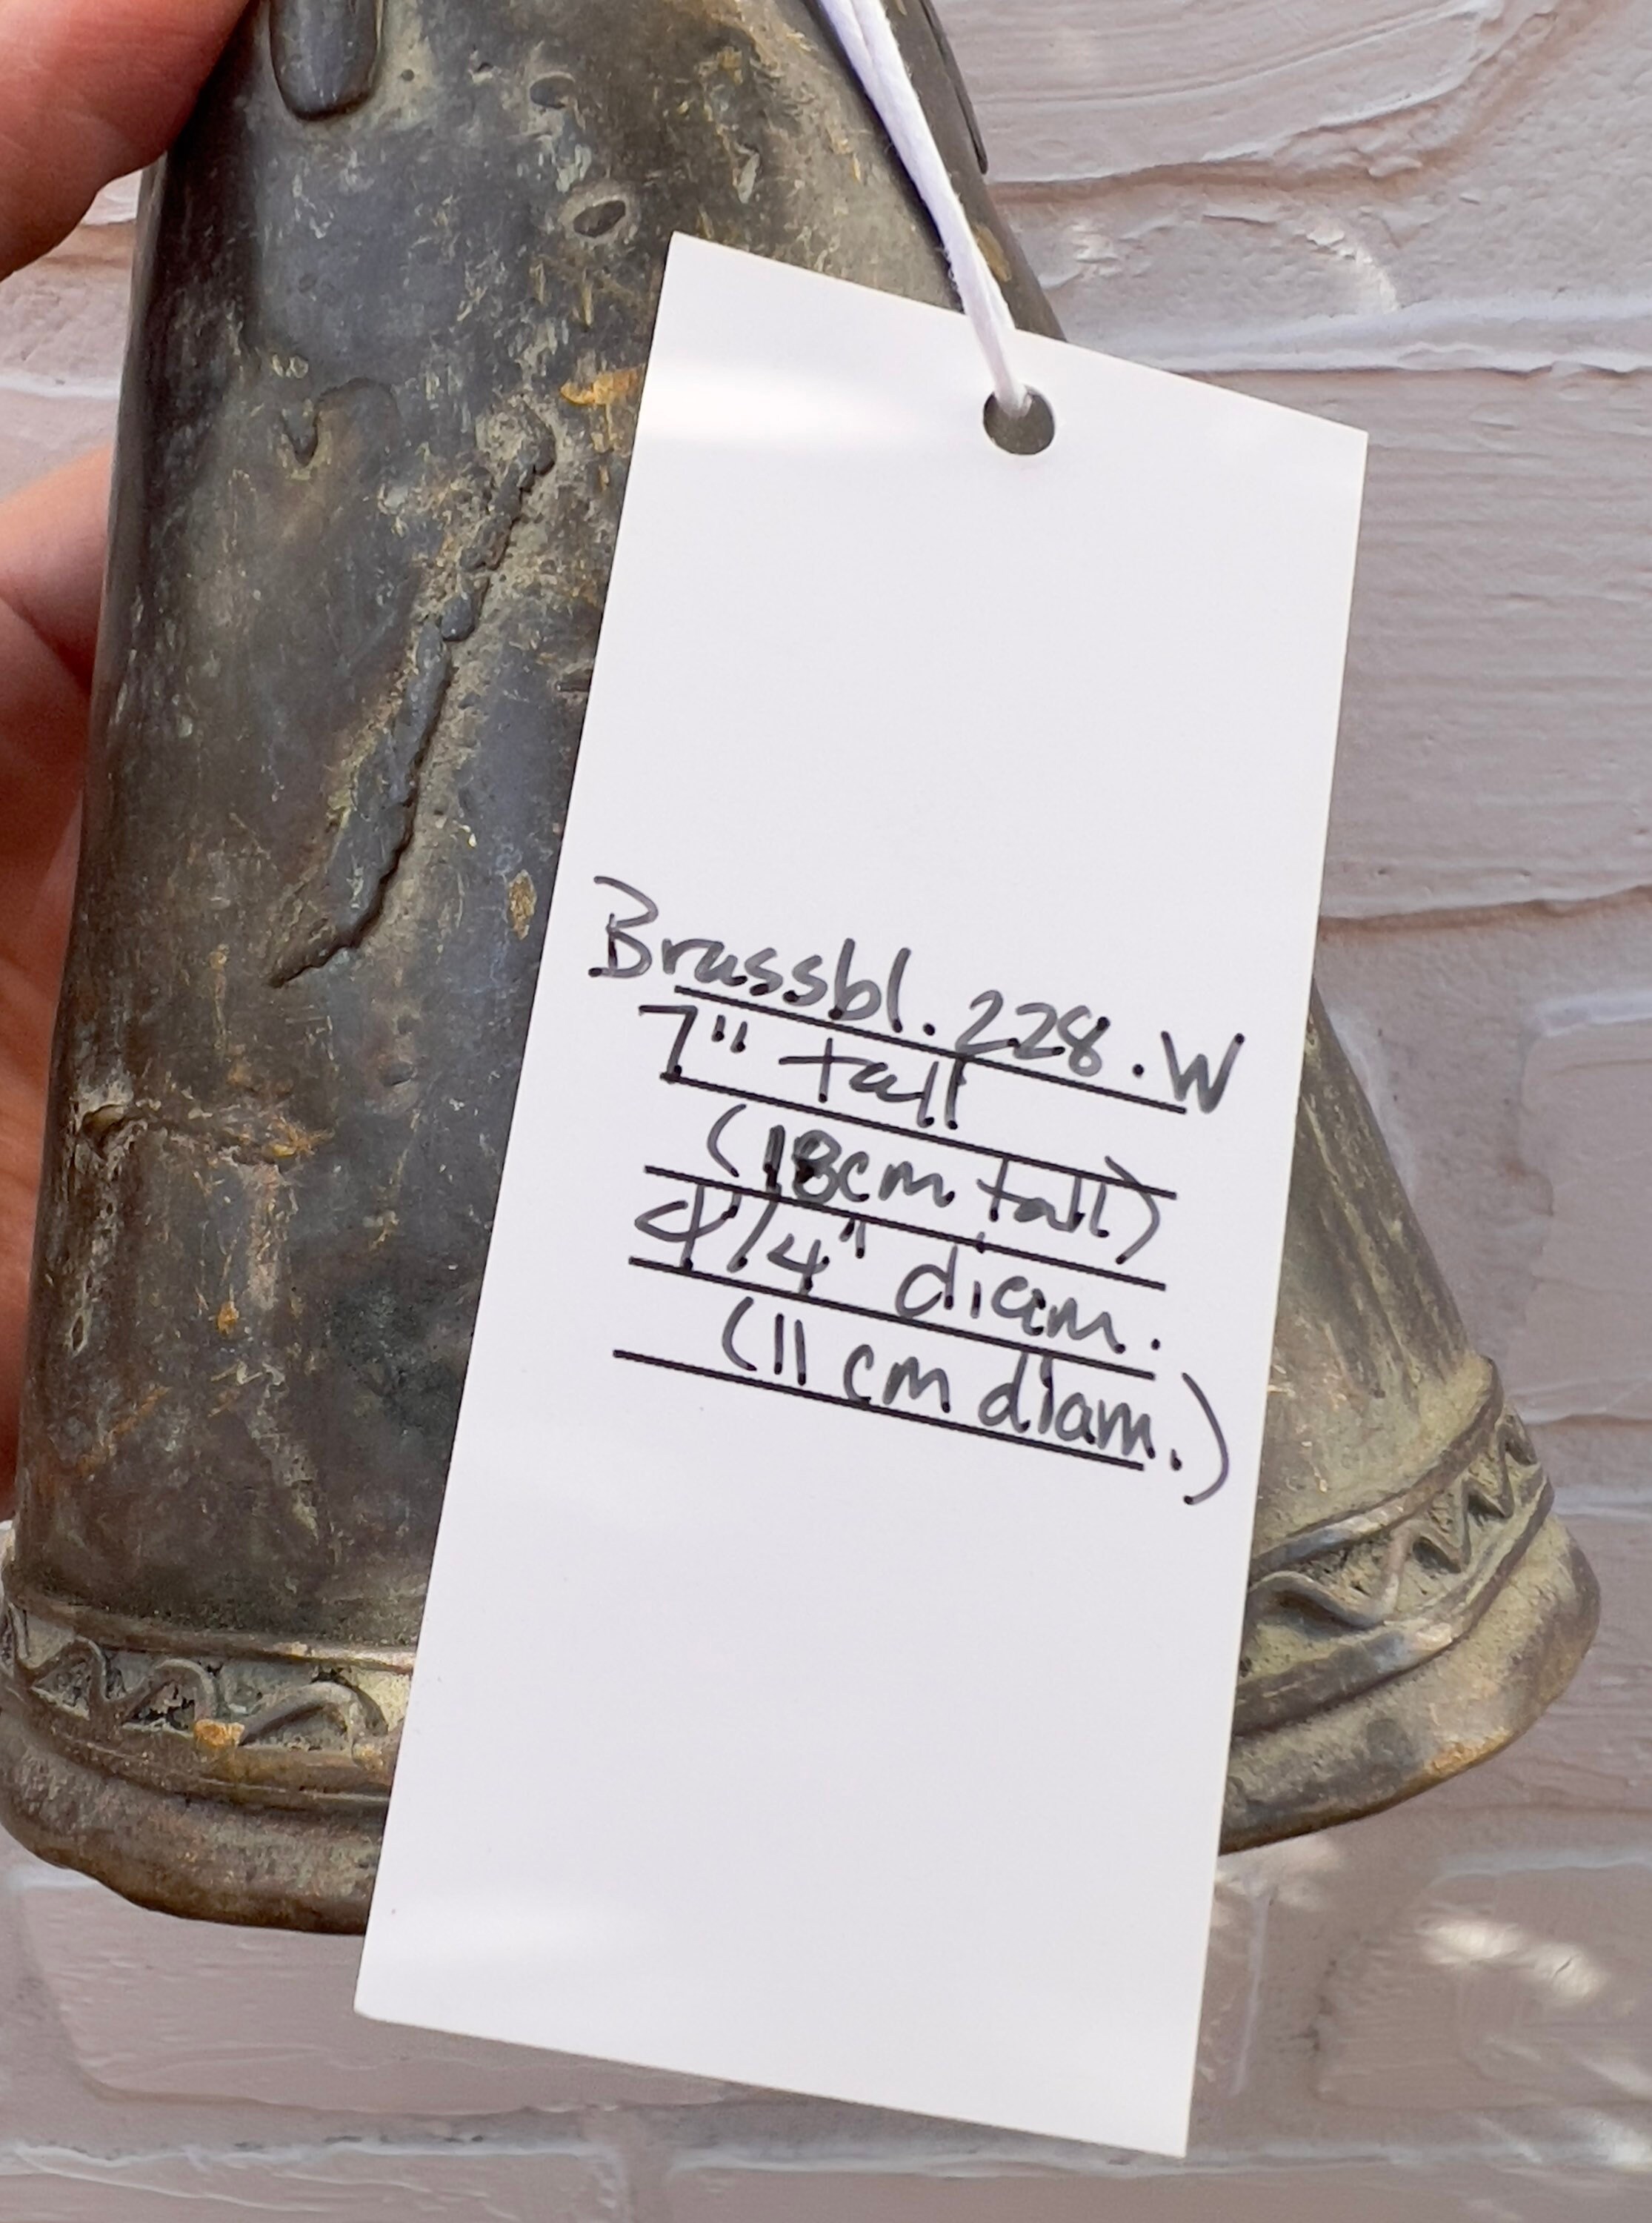 Brassbl.228.W
7" tall
(18cm tall)
4 1/4" diam.
(11 cm diam.)